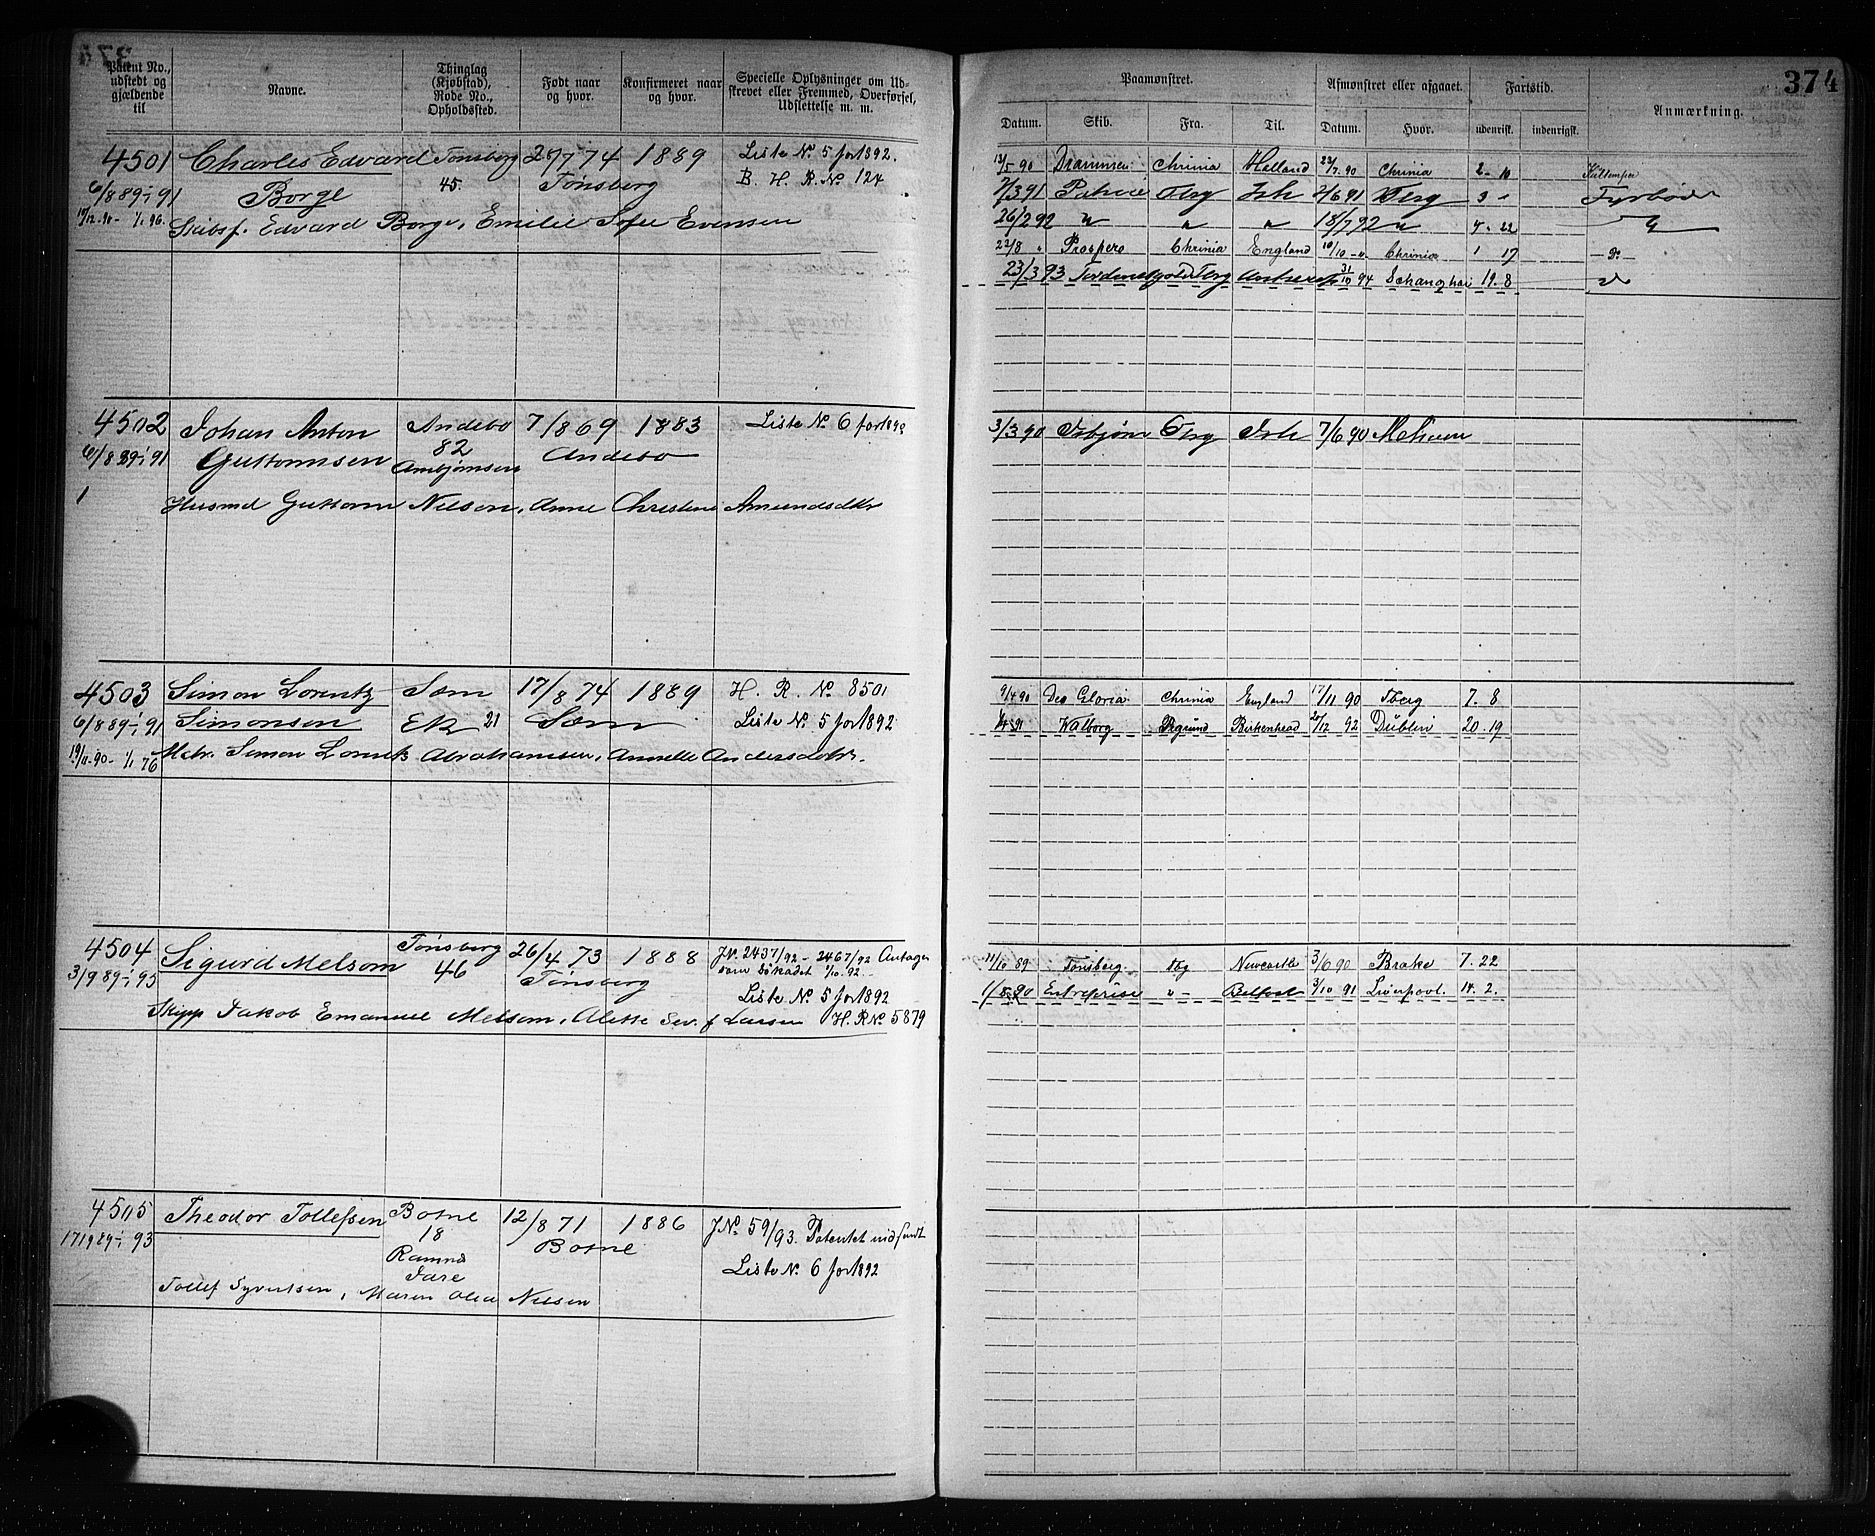 374
Patent No., udstedt og gjældende til
Navne.
Thinglag (Kjøbstad), Rode No., Opholdssted.
Født naar og hvor.
Konfirmeret naar og hvor.
Specielle Oplysninger om Udskrevet eller Fremmed, Overførsel, Udslettelse m. m.
Paamønstret.
Afmønstret eller afgaaet.
Fartstid.
Anmærkning.
Datum. Skib. Fra. Til. Datum. Hvor. udenrisk. indenrigsk.
4501 Charles Edvard Tønsberg 27/7 74 1889 Liste No. 5 for 1892.
6/8 89-1/1 91 Borge 45. Tønsberg B. H. R. No 124
19/12 90- 1/1 96. Skibsf. Edvard Borge, Emilie Sofie Evensen
13/5 90 Drammen Chrinia Holland 22/7 90 Chrinia 2-10
7/3 91 Patria Tbrg Ish 2/6 91 Tbrg 3 " Fyrbøder
26/2 92 " " " 18/7 92 " 4. 22
23/8 " Prospero Chrinia England 10/10 " Chrinia 1 17 Do
23/3 93 Tbrg 31/10 94 Schanghai 19. 8
4502 Johan Anton Andebo 7/8 69 1883 Liste No. 6 for 1892
6/8 89-1/1 91 Guttormsen 82 Andebo
1
Husmd Guttorm Nilsen, Anne Christine Amundsdtr
3/3 90 Isbjørn Tbrg Ish 7/6 90 Melsom
4503 Simon Lorentz Sæm 17/8 74 1889 H. R. No 8501
6/8 89-1/1 91 Simonsen Ek 21 Sæm Liste No. 5 for 1892
19/11 90- 1/1 76 Matr. Simon Lorentz Abrahamsen, Annette Andersdtr.
9/4 90 Deo Gloria Chrinia England 17/11 90 Tberg 7. 8
1/4 91 Walborg Birkenhead 20/12 92 Dublin 20. 19
4504 Sigurd Melsom Tønsberg 26/4 73 1888 JN. 2437/92 - 2467/92 Antagen
3/9 89-1/1 95 46 Tønsberg som Søkadet 1/10 92.
Liste No. 5 for 1892
Skipp Jakob Emanuel Melsom, Alette Sev. f Larsen H. R No 5879
11/10 89 Tønsberg Tbg Newcastle 3/6 90 Brake 7. 22
1/8 90 Entreprise " Belfast 3/10 91 Liverpool. 14. 2.
4505 Theodor Tollefsen Botne 12/8 71 1886 JNo. 59/93. Patentet indsendt
17/9 89-1/1 93 18 Botne
Ramnes Liste No. 6 for 1892
Tollef Syvertsen, Maren Olea Nilsen